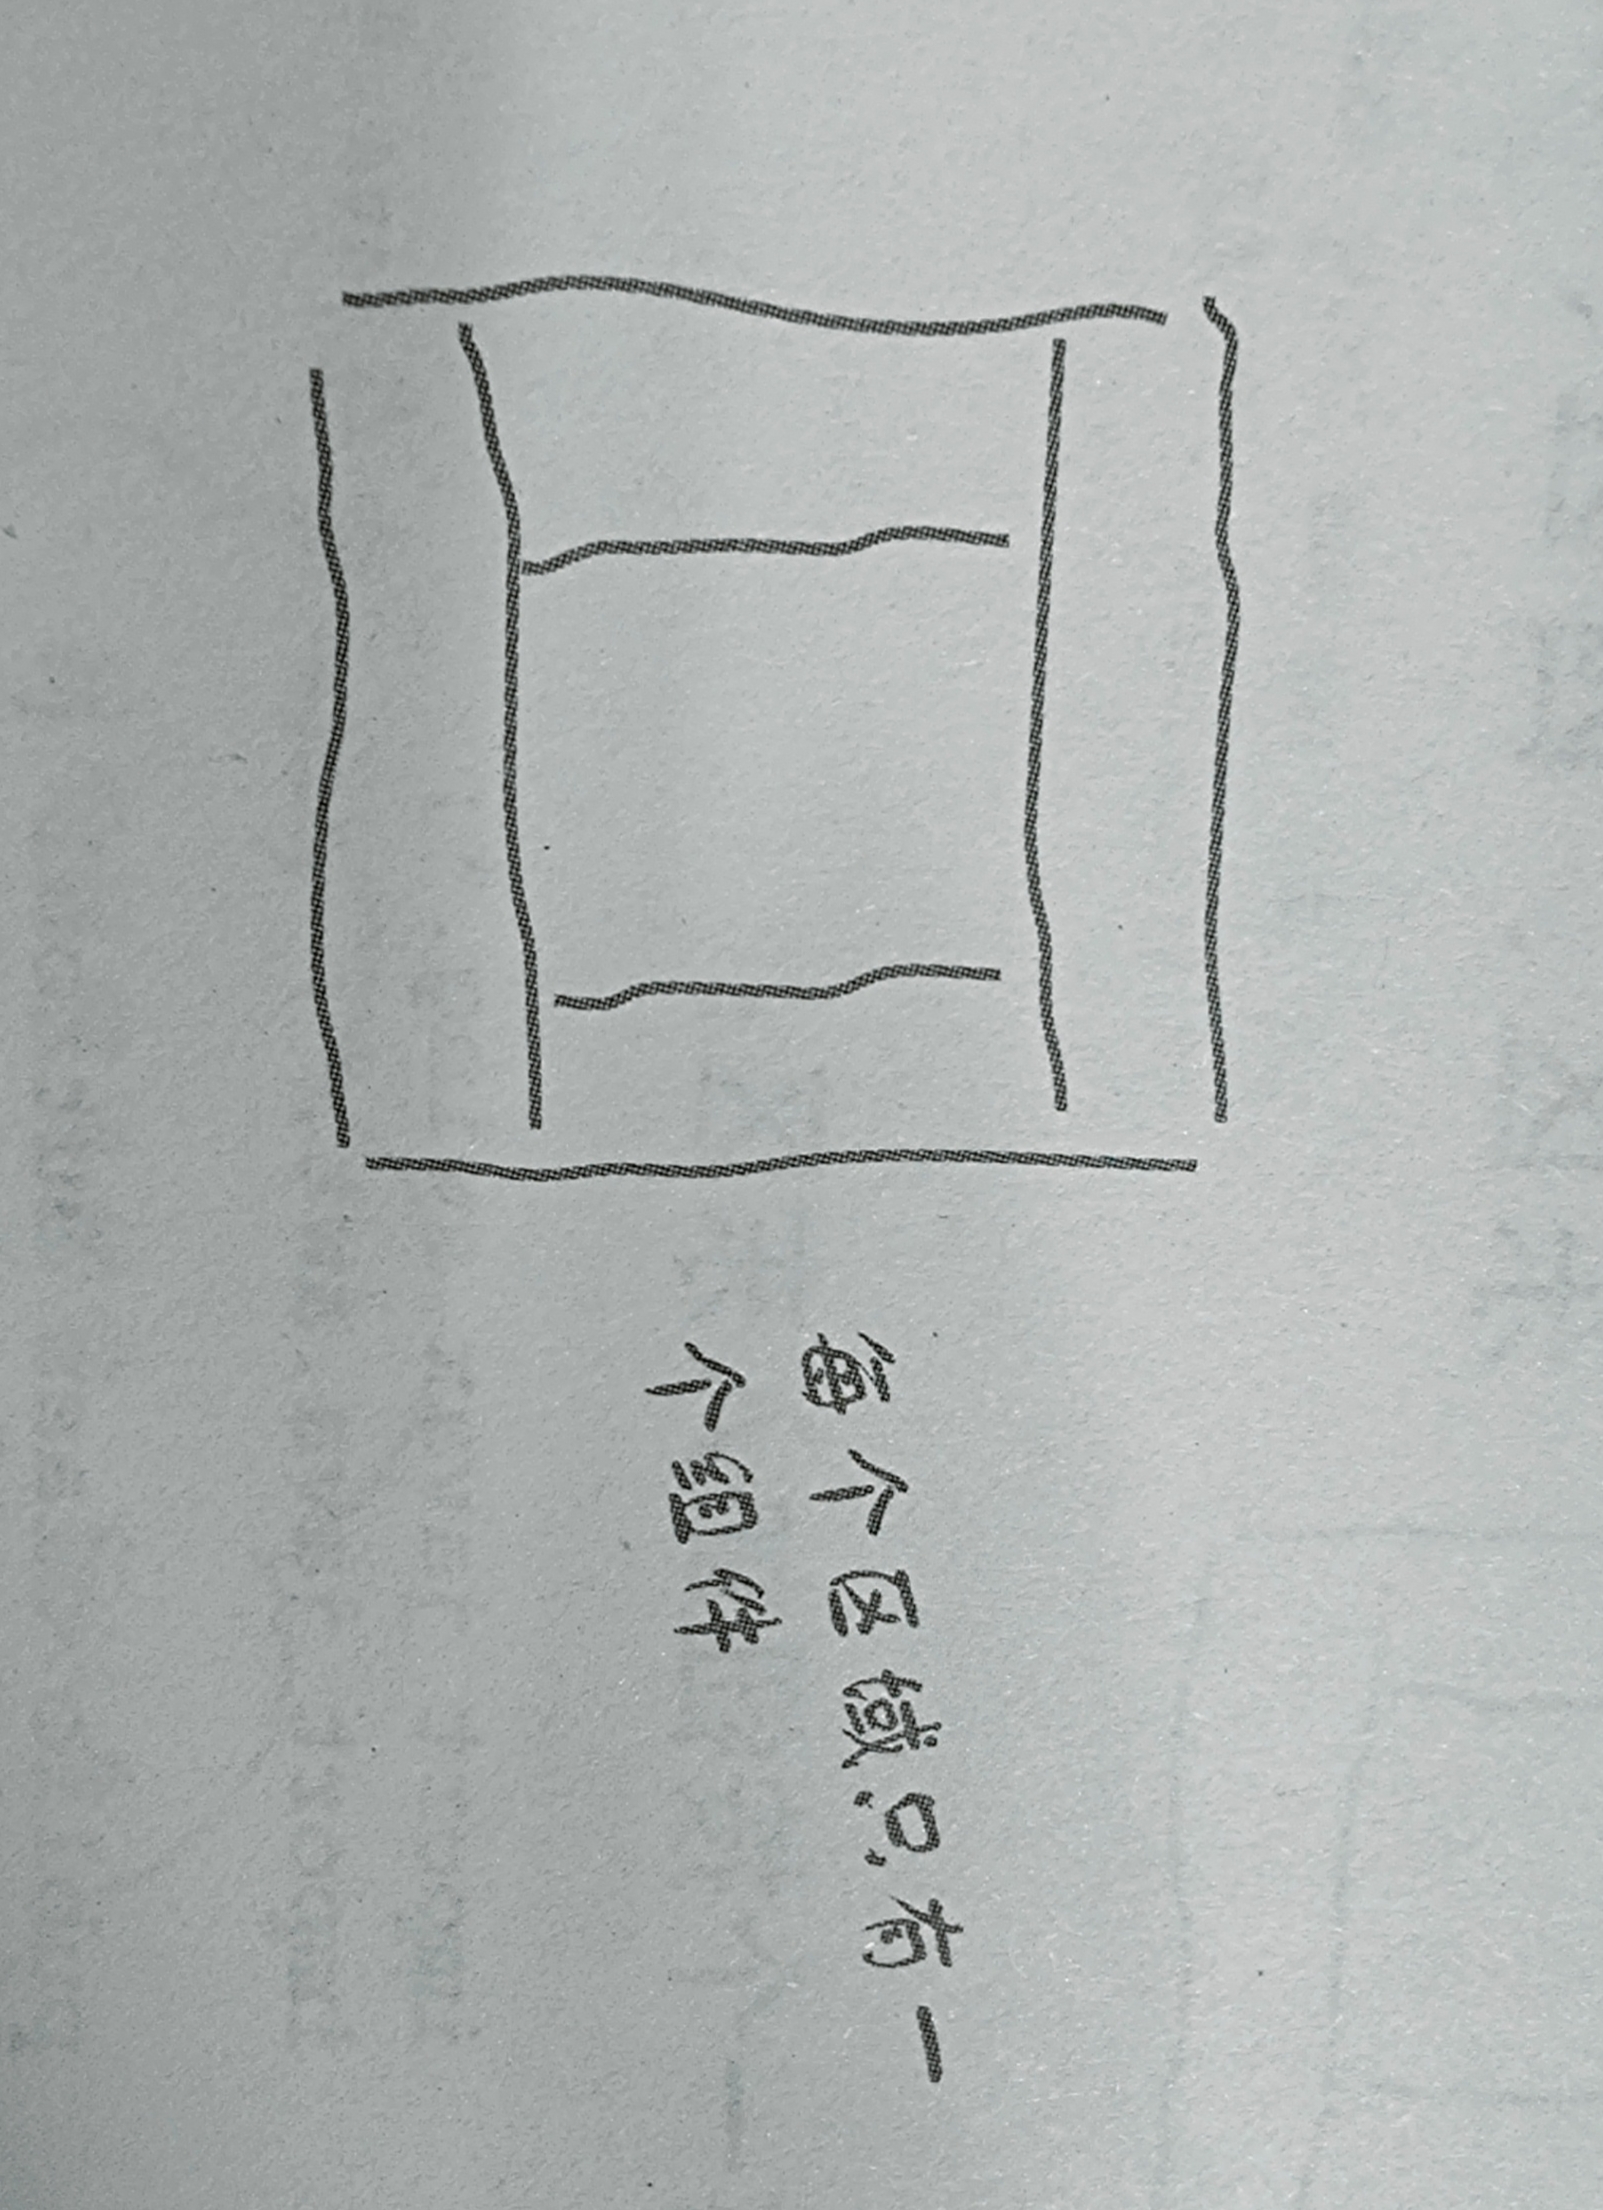 每个区域只有一
个组件